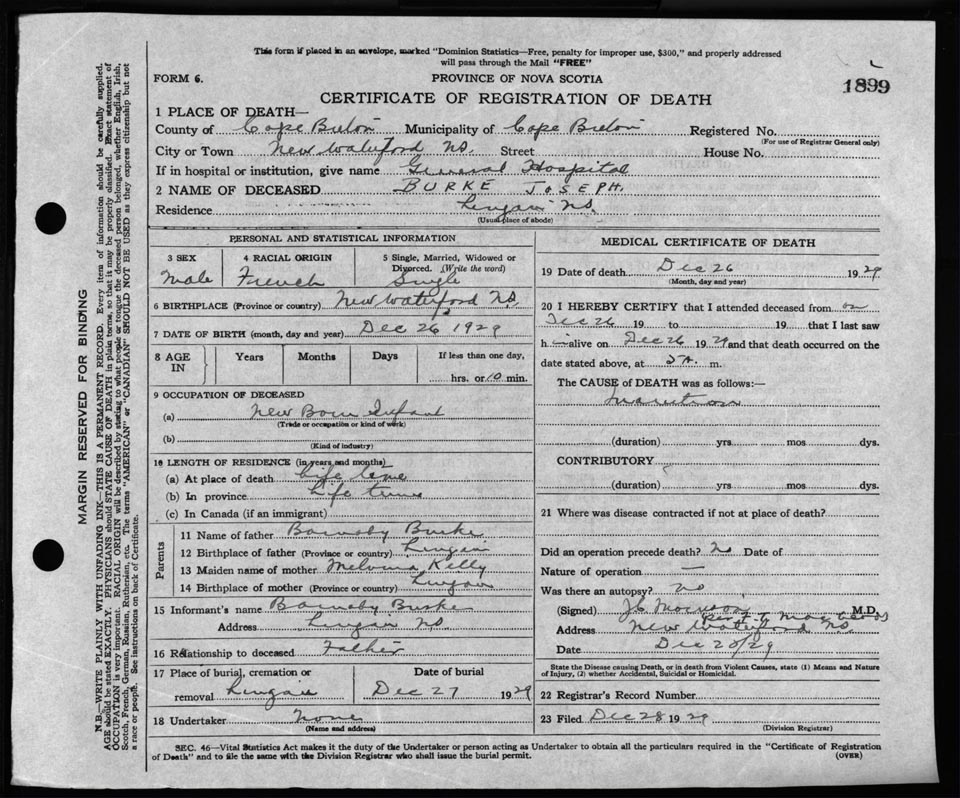 This form if placed in an envelope, marked "Dominion Statistics—Free, penalty for improper use, $300," and properly addressed
will pass through the Mail "FREE"
FORM 6.
PROVINCE OF NOVA SCOTIA
1899
CERTIFICATE OF REGISTRATION OF DEATH
1 PLACE OF DEATH—
County of Cape Breton Municipality of Cape Breton Registered No.
(For use of Registrar General only)
City or Town New Waterford N.S. Street House No.
If in hospital or institution, give name General Hospital
2 NAME OF DECEASED BURKE JOSEPH.
Residence Lingan N.S.
(Usual place of abode)
PERSONAL AND STATISTICAL INFORMATION
3 SEX 4 RACIAL ORIGIN 5 Single, Married, Widowed or
Divorced. (Write the word)
Male French Single
6 BIRTHPLACE (Province or country) New Waterford N.S.
7 DATE OF BIRTH (month, day and year) Dec 26 1929
8 AGE IN Years Months Days If less than one day,
hrs. or 10 min.
9 OCCUPATION OF DECEASED
(a) New Born Infant
(Trade or occupation or kind of work)
(b)
(Kind of industry)
10 LENGTH OF RESIDENCE (in years and months)
(a) At place of death Life time
(b) In province Life time
(c) In Canada (if an immigrant)
Parents
11 Name of father Barnaby Burke
12 Birthplace of father (Province or country) Lingan
13 Maiden name of mother Kelly
14 Birthplace of mother (Province or country) Lingan
15 Informant's name Barnaby Burke
Address Lingan N.S.
16 Relationship to deceased Father
17 Place of burial, cremation or removal Lingan
Date of burial
Dec 27 1929
18 Undertaker None
(Name and address)
MEDICAL CERTIFICATE OF DEATH
19 Date of death Dec 26 1929
(Month, day and year)
20 I HEREBY CERTIFY that I attended deceased from on
Dec 26 19 to 19 that I last saw
h alive on Dec 26 1929 and that death occurred on the
date stated above, at m.
The CAUSE of DEATH was as follows:—
(duration) yrs mos dys.
CONTRIBUTORY
(duration) yrs mos dys.
21 Where was disease contracted if not at place of death?
Did an operation precede death? No Date of
Nature of operation —
Was there an autopsy? No
(Signed) M.D.
Address New Waterford N.S.
Date Dec /29
State the Disease causing Death, or in death from Violent Causes, state (1) Means and Nature
of Injury, (2) whether Accidental, Suicidal or Homicidal.
22 Registrar's Record Number
23 Filed Dec 28 1929
(Division Registrar)
SEC. 46—Vital Statistics Act makes it the duty of the Undertaker or person acting as Undertaker to obtain all the particulars required in the "Certificate of Registration
of Death" and to file the same with the Division Registrar who shall issue the burial permit.
(OVER)
MARGIN RESERVED FOR BINDING
N.B.—WRITE PLAINLY WITH UNFADING INK—THIS IS A PERMANENT RECORD. Every item of information should be carefully supplied.
AGE should be stated EXACTLY. PHYSICIANS should STATE CAUSE OF DEATH in plain terms, so that it may be properly classified. Exact statement of
OCCUPATION is very important. RACIAL ORIGIN will be described by stating to what people or tongue the deceased person belonged, whether English, Irish,
Scotch, French, German, Russian, Ruthenian, etc. The terms "AMERICAN" or "CANADIAN" SHOULD NOT BE USED as they express citizenship but not
a race or people. See instructions on back of Certificate.